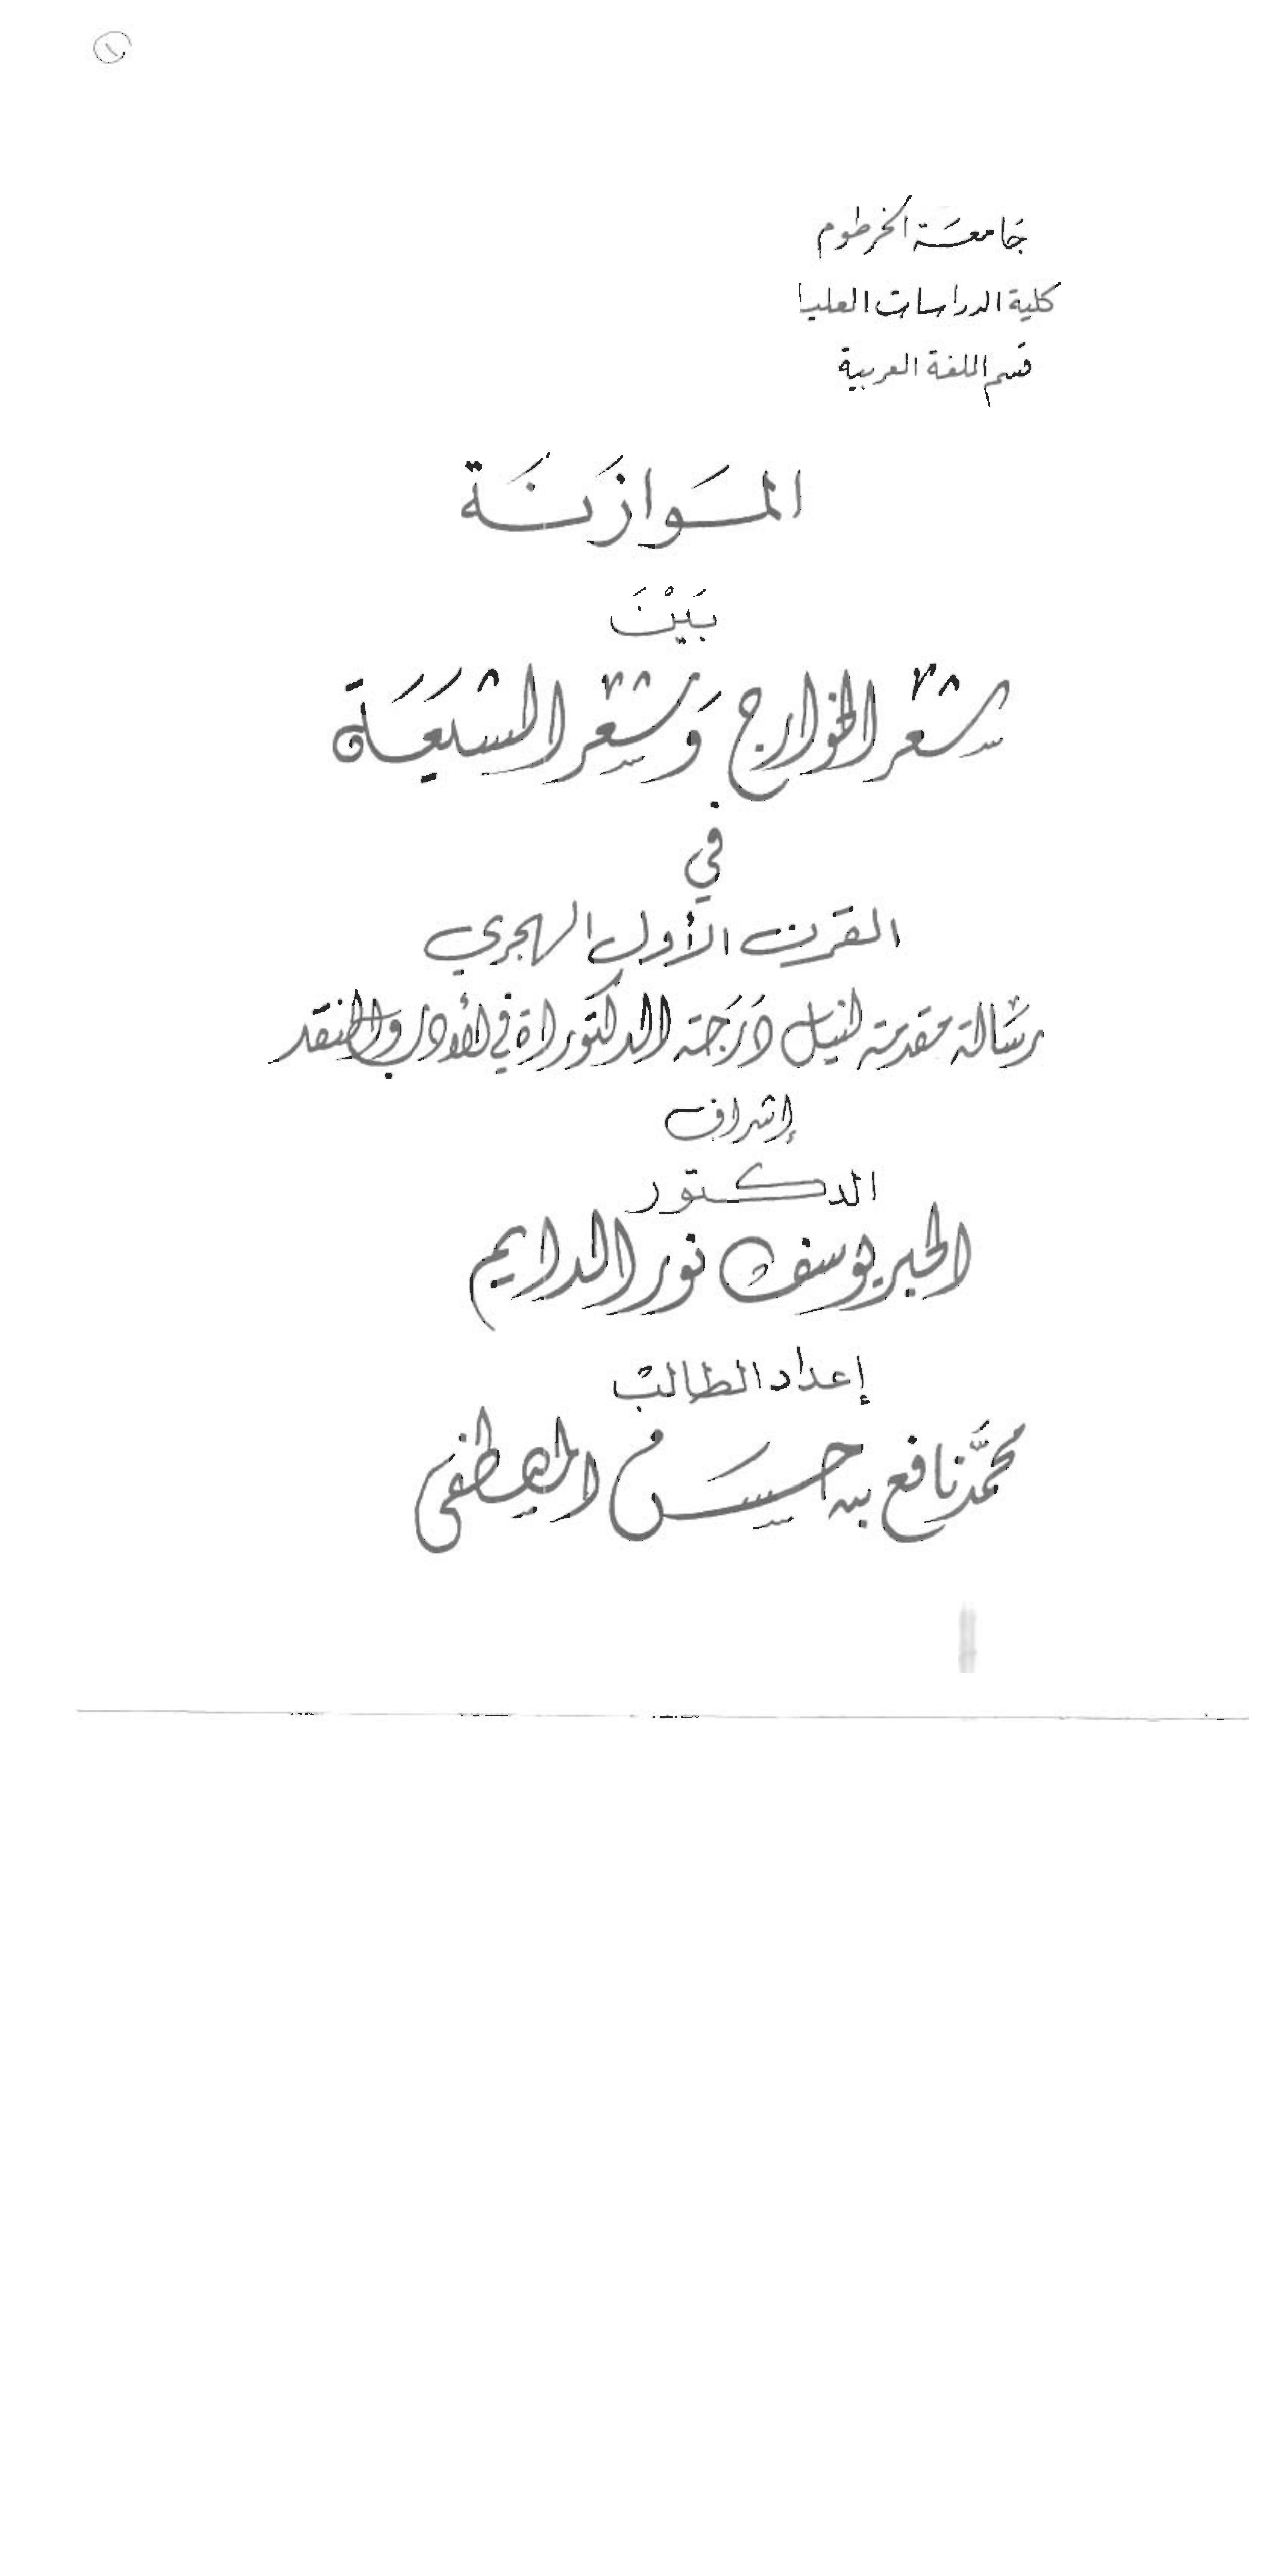 ١
جَامعَة الخرطوم
كلية الدراسات العليا
قسم اللغة العربية
المَوازَنَة
بَيْنَ
شعر الخوارج وَشعر الشيعَة
في
القرن الأول الهجري
رسَالة مقدمة لنيل دَرَجَة الدكتوراة في الأدب والنقد
إشراف
الدكتور
الحبر يوسف نور الدايم
إعداد الطالب
محمَّد نافع بن حسَن المصطفى